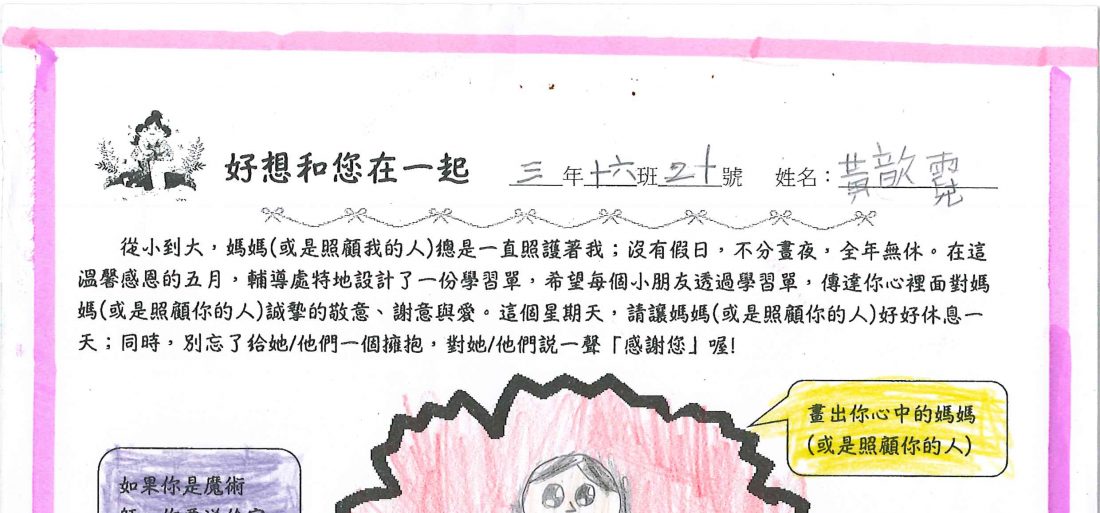 好想和您在一起 三年十六班21號 姓名：黃歆霓
從小到大，媽媽(或是照顧我的人)總是一直照護著我；沒有假日，不分晝夜，全年無休。在這
溫馨感恩的五月，輔導處特地設計了一份學習單，希望每個小朋友透過學習單，傳達你心裡面對媽
媽(或是照顧你的人)誠摯的敬意、謝意與愛。這個星期天，請讓媽媽(或是照顧你的人)好好休息一
天；同時，別忘了給她/他們一個擁抱，對她/他們說一聲「感謝您」喔!
畫出你心中的媽媽
(或是照顧你的人)
如果你是魔術